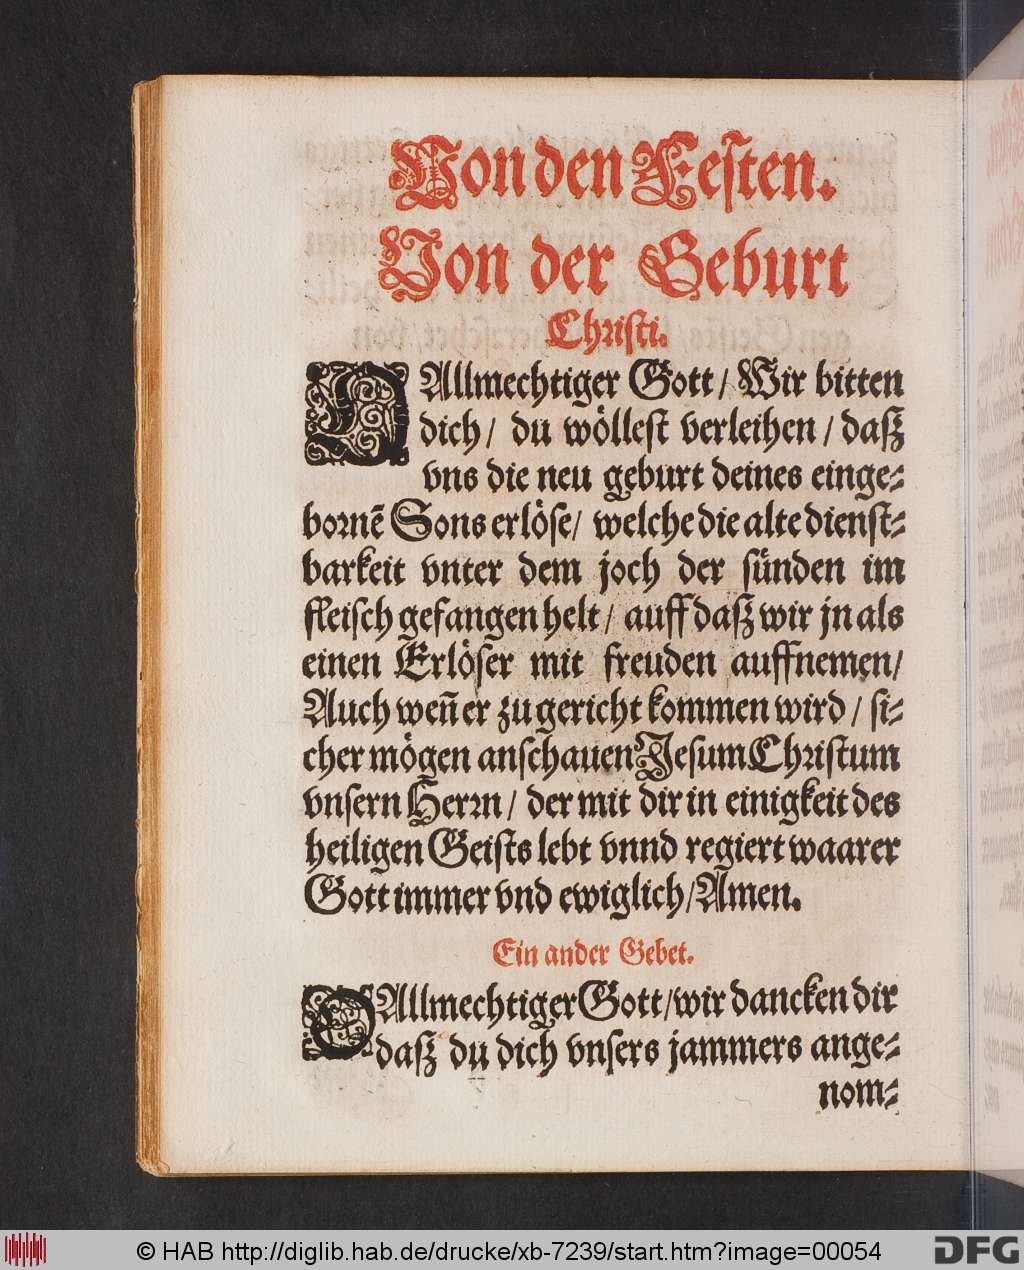 Von den Festen.
Von der Geburt
Christi.
O Allmechtiger Gott / Wir bitten
dich / du wöllest verleihen / daß
vns die neu geburt deines einge-
bornē Sons erlöse / welche die alte dienst-
barkeit vnter dem joch der sünden im
fleisch gefangen helt / auff daß wir jn als
einen Erlöser mit freuden auffnemen /
Auch weñ er zu gericht kommen wird / si-
cher mögen anschauen Jesum Christum
vnsern Herrn / der mit dir in einigkeit des
heiligen Geists lebt vnnd regiert waarer
Gott immer vnd ewiglich / Amen.
Ein ander Gebet.
O Allmechtiger Gott / wir dancken dir
daß du dich vnsers jammers ange-
nom-
© HAB http://diglib.hab.de/drucke/xb-7239/start.htm?image=00054
DFG